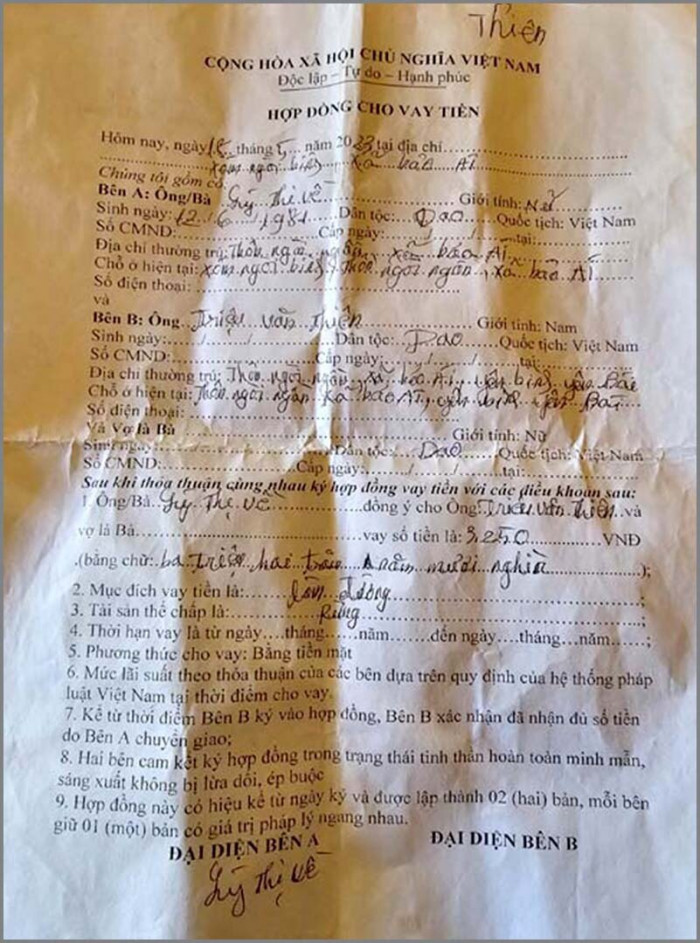 Thiên
CỘNG HÒA XÃ HỘI CHỦ NGHĨA VIỆT NAM
Độc lập – Tự do – Hạnh phúc
HỢP ĐỒNG CHO VAY TIỀN
Hôm nay, ngày 18 tháng 5 năm 2023 tại địa chỉ
xóm ngòi biên xã bảo Ái
Chúng tôi gồm có
Bên A: Ông/Bà Lý Thị Về Giới tính: Nữ
Sinh ngày: 12/6/1981 Dân tộc: Dao Quốc tịch: Việt Nam
Số CMND: Cấp ngày: / / tại:
Địa chỉ thường trú: Thôn ngòi ngần, xã bảo Ái
Chỗ ở hiện tại: xóm ngòi biên, Thôn ngòi ngần, xã bảo Ái
Số điện thoại:
và
Bên B: Ông Triệu văn Thiên Giới tính: Nam
Sinh ngày: / / Dân tộc: Dao Quốc tịch: Việt Nam
Số CMND: Cấp ngày: / / tại:
Địa chỉ thường trú: Thôn ngòi ngần, xã bảo Ái, yên bình, yên Bái
Chỗ ở hiện tại: Thôn ngòi ngần xã bảo Ái, yên bình yên Bái
Số điện thoại:
Và Vợ là Bà Giới tính: Nữ
Sinh ngày: / / Dân tộc: Dao Quốc tịch: Việt Nam
Số CMND: Cấp ngày: / / tại:
Sau khi thỏa thuận cùng nhau ký hợp đồng vay tiền với các điều khoản sau:
1. Ông/Bà Lý Thị Về đồng ý cho Ông: Triệu văn Thiên và
vợ là Bà vay số tiền là: 3,250 VNĐ
(bằng chữ: ba Triệu hai trăm năm mươi nghìn );
2. Mục đích vay tiền là:
3. Tài sản thế chấp là: Rừng
4. Thời hạn vay là từ ngày....tháng......năm.......đến ngày....tháng...năm......;
5. Phương thức cho vay: Bằng tiền mặt
6. Mức lãi suất theo thỏa thuận của các bên dựa trên quy định của hệ thống pháp
luật Việt Nam tại thời điểm cho vay.
7. Kể từ thời điểm Bên B ký vào hợp đồng, Bên B xác nhận đã nhận đủ số tiền
do Bên A chuyển giao;
8. Hai bên cam kết ký hợp đồng trong trạng thái tinh thần hoàn toàn minh mẫn,
sáng xuất không bị lừa dối, ép buộc
9. Hợp đồng này có hiệu kể từ ngày ký và được lập thành 02 (hai) bản, mỗi bên
giữ 01 (một) bản có giá trị pháp lý ngang nhau.
ĐẠI DIỆN BÊN A ĐẠI DIỆN BÊN B
Lý Thị Về